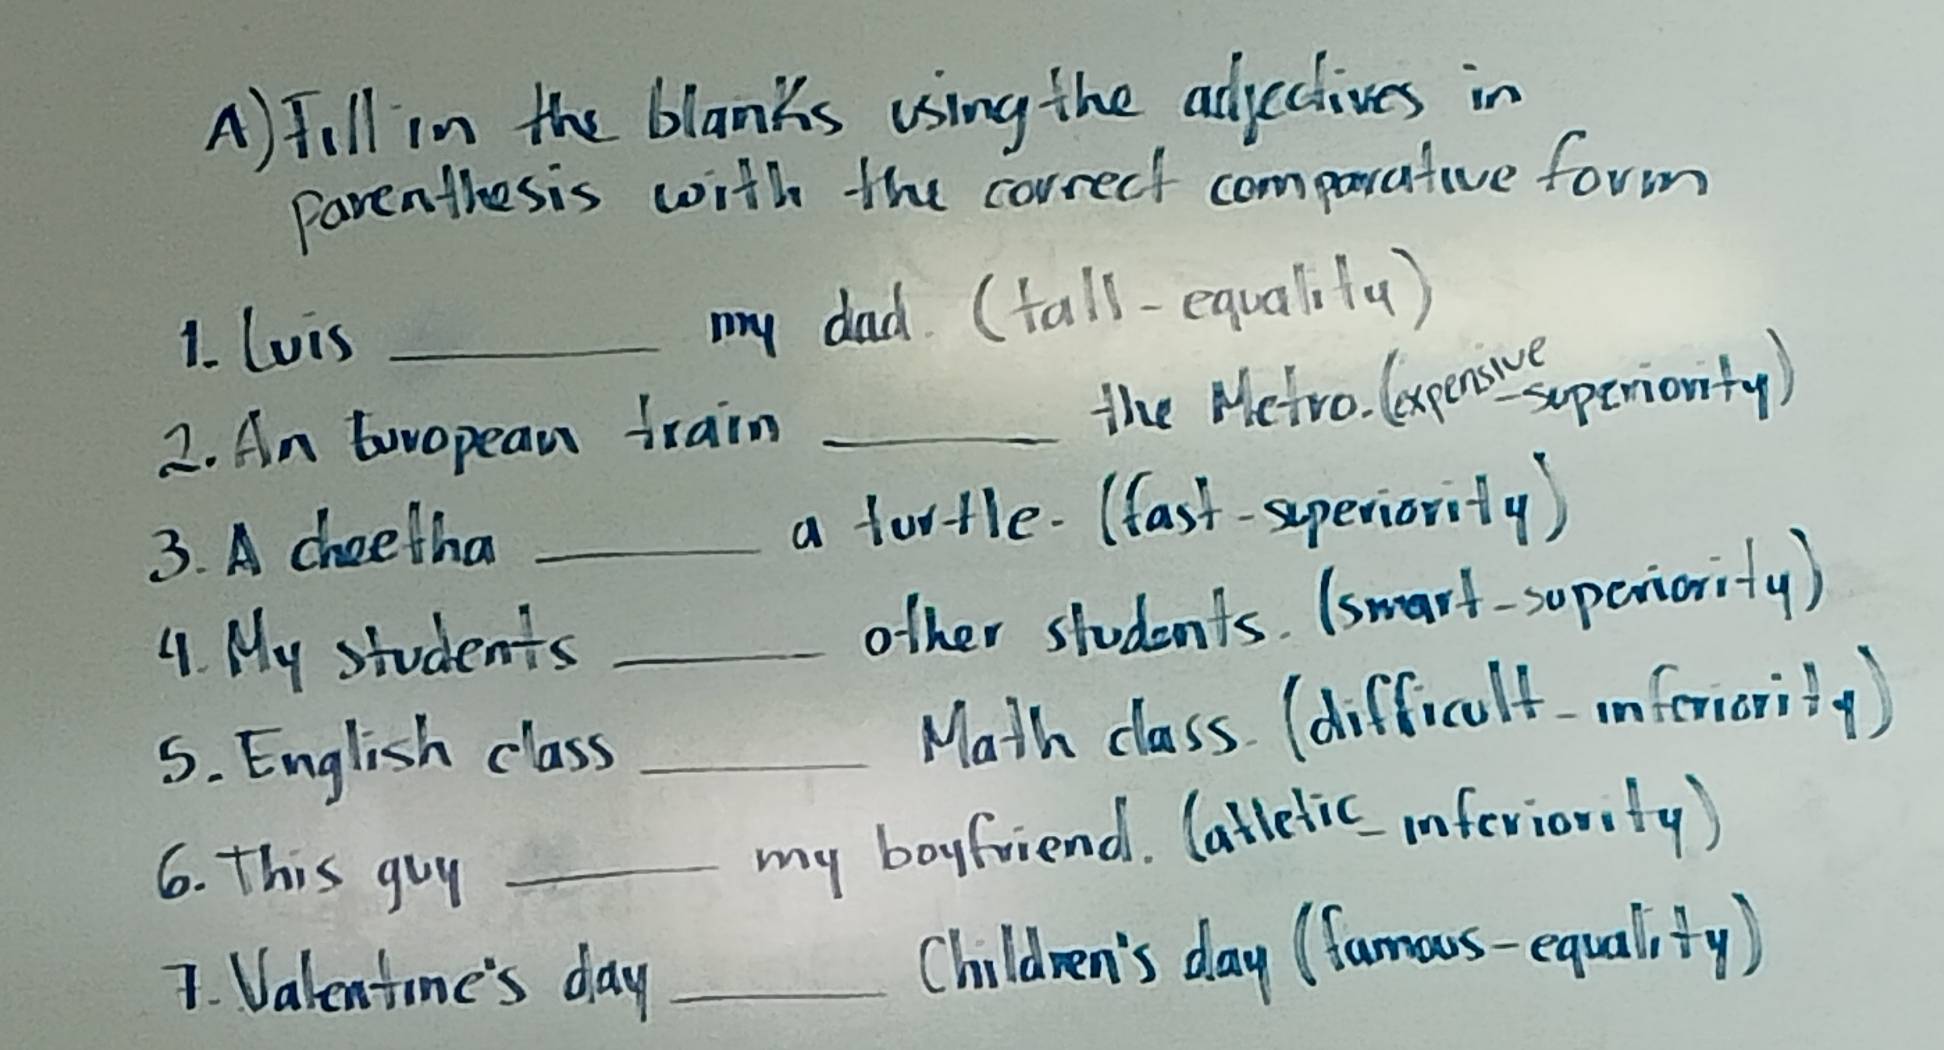 A) Fill in the blanks using the adjectives in
parenthesis with the correct comparative form
1. Luis ________ my dad. (tall - equality)
2. An European train ________ the Metro. (expensive - superiority)
3. A cheetha ________ a turtle. (fast - superiority)
4. My students ________ other students. (smart - superiority)
5. English class ________ Math class. (difficult - inferiority)
6. This guy ________ my boyfriend. (atletic - inferiority)
7. Valentine's day ________ Children's day (famous - equality)